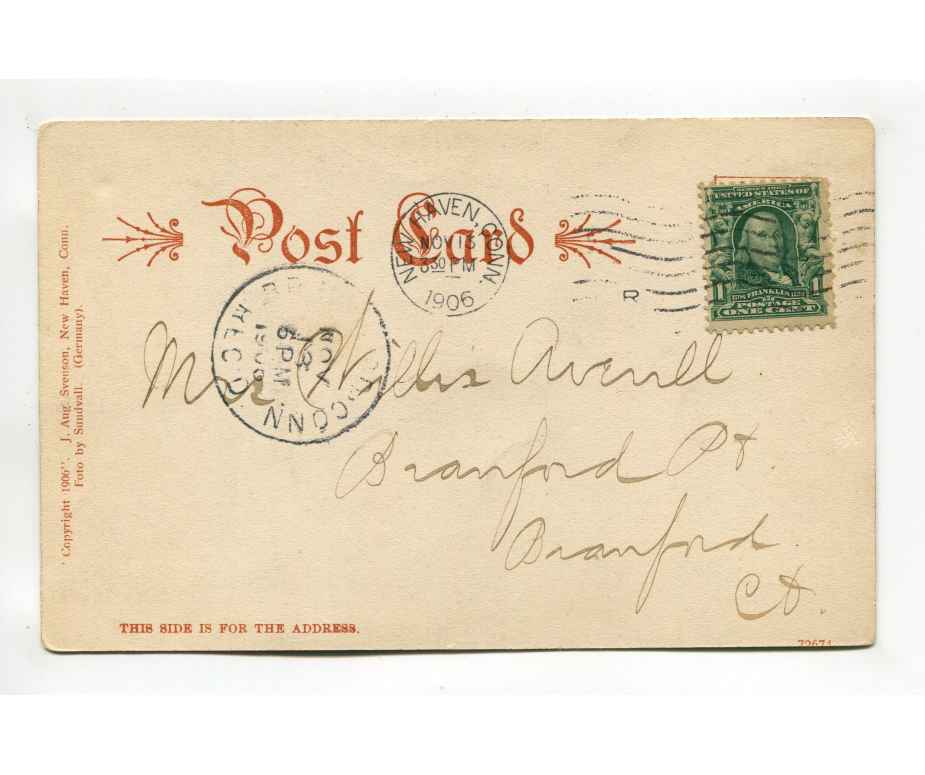 Post Card
NEW HAVEN, CONN.
NOV 13
30 PM
1906
R
SERIES 1902
UNITED STATES OF
AMERICA
1 1
FRANKLIN
POSTAGE
ONE CENT
CONN.
NOV
5 PM
1906
REC'D
Willis Averill
Branford Pt.
Branford
Ct.
Copyright 1906". J. Aug. Svenson, New Haven, Conn.
Foto by Sundvall. (Germany).
THIS SIDE IS FOR THE ADDRESS.